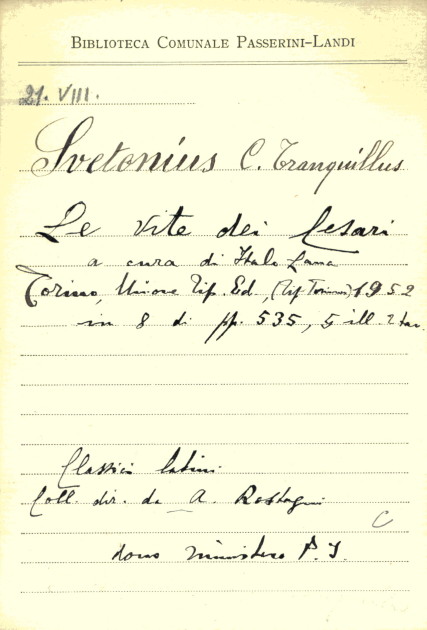 BIBLIOTECA COMUNALE PASSERINI-LANDI
21. VIII.
Svetonius C. Tranquillus
Le vite dei Cesari
a cura di Italo Lana
Torino, Unione Tip. Ed., (Tip. Torinese) 1952
in 8 di pp. 535, 5 ill. 2 tav.
Classici latini
Coll. dir. da A. Rostagni
C
dono ministero P. I.